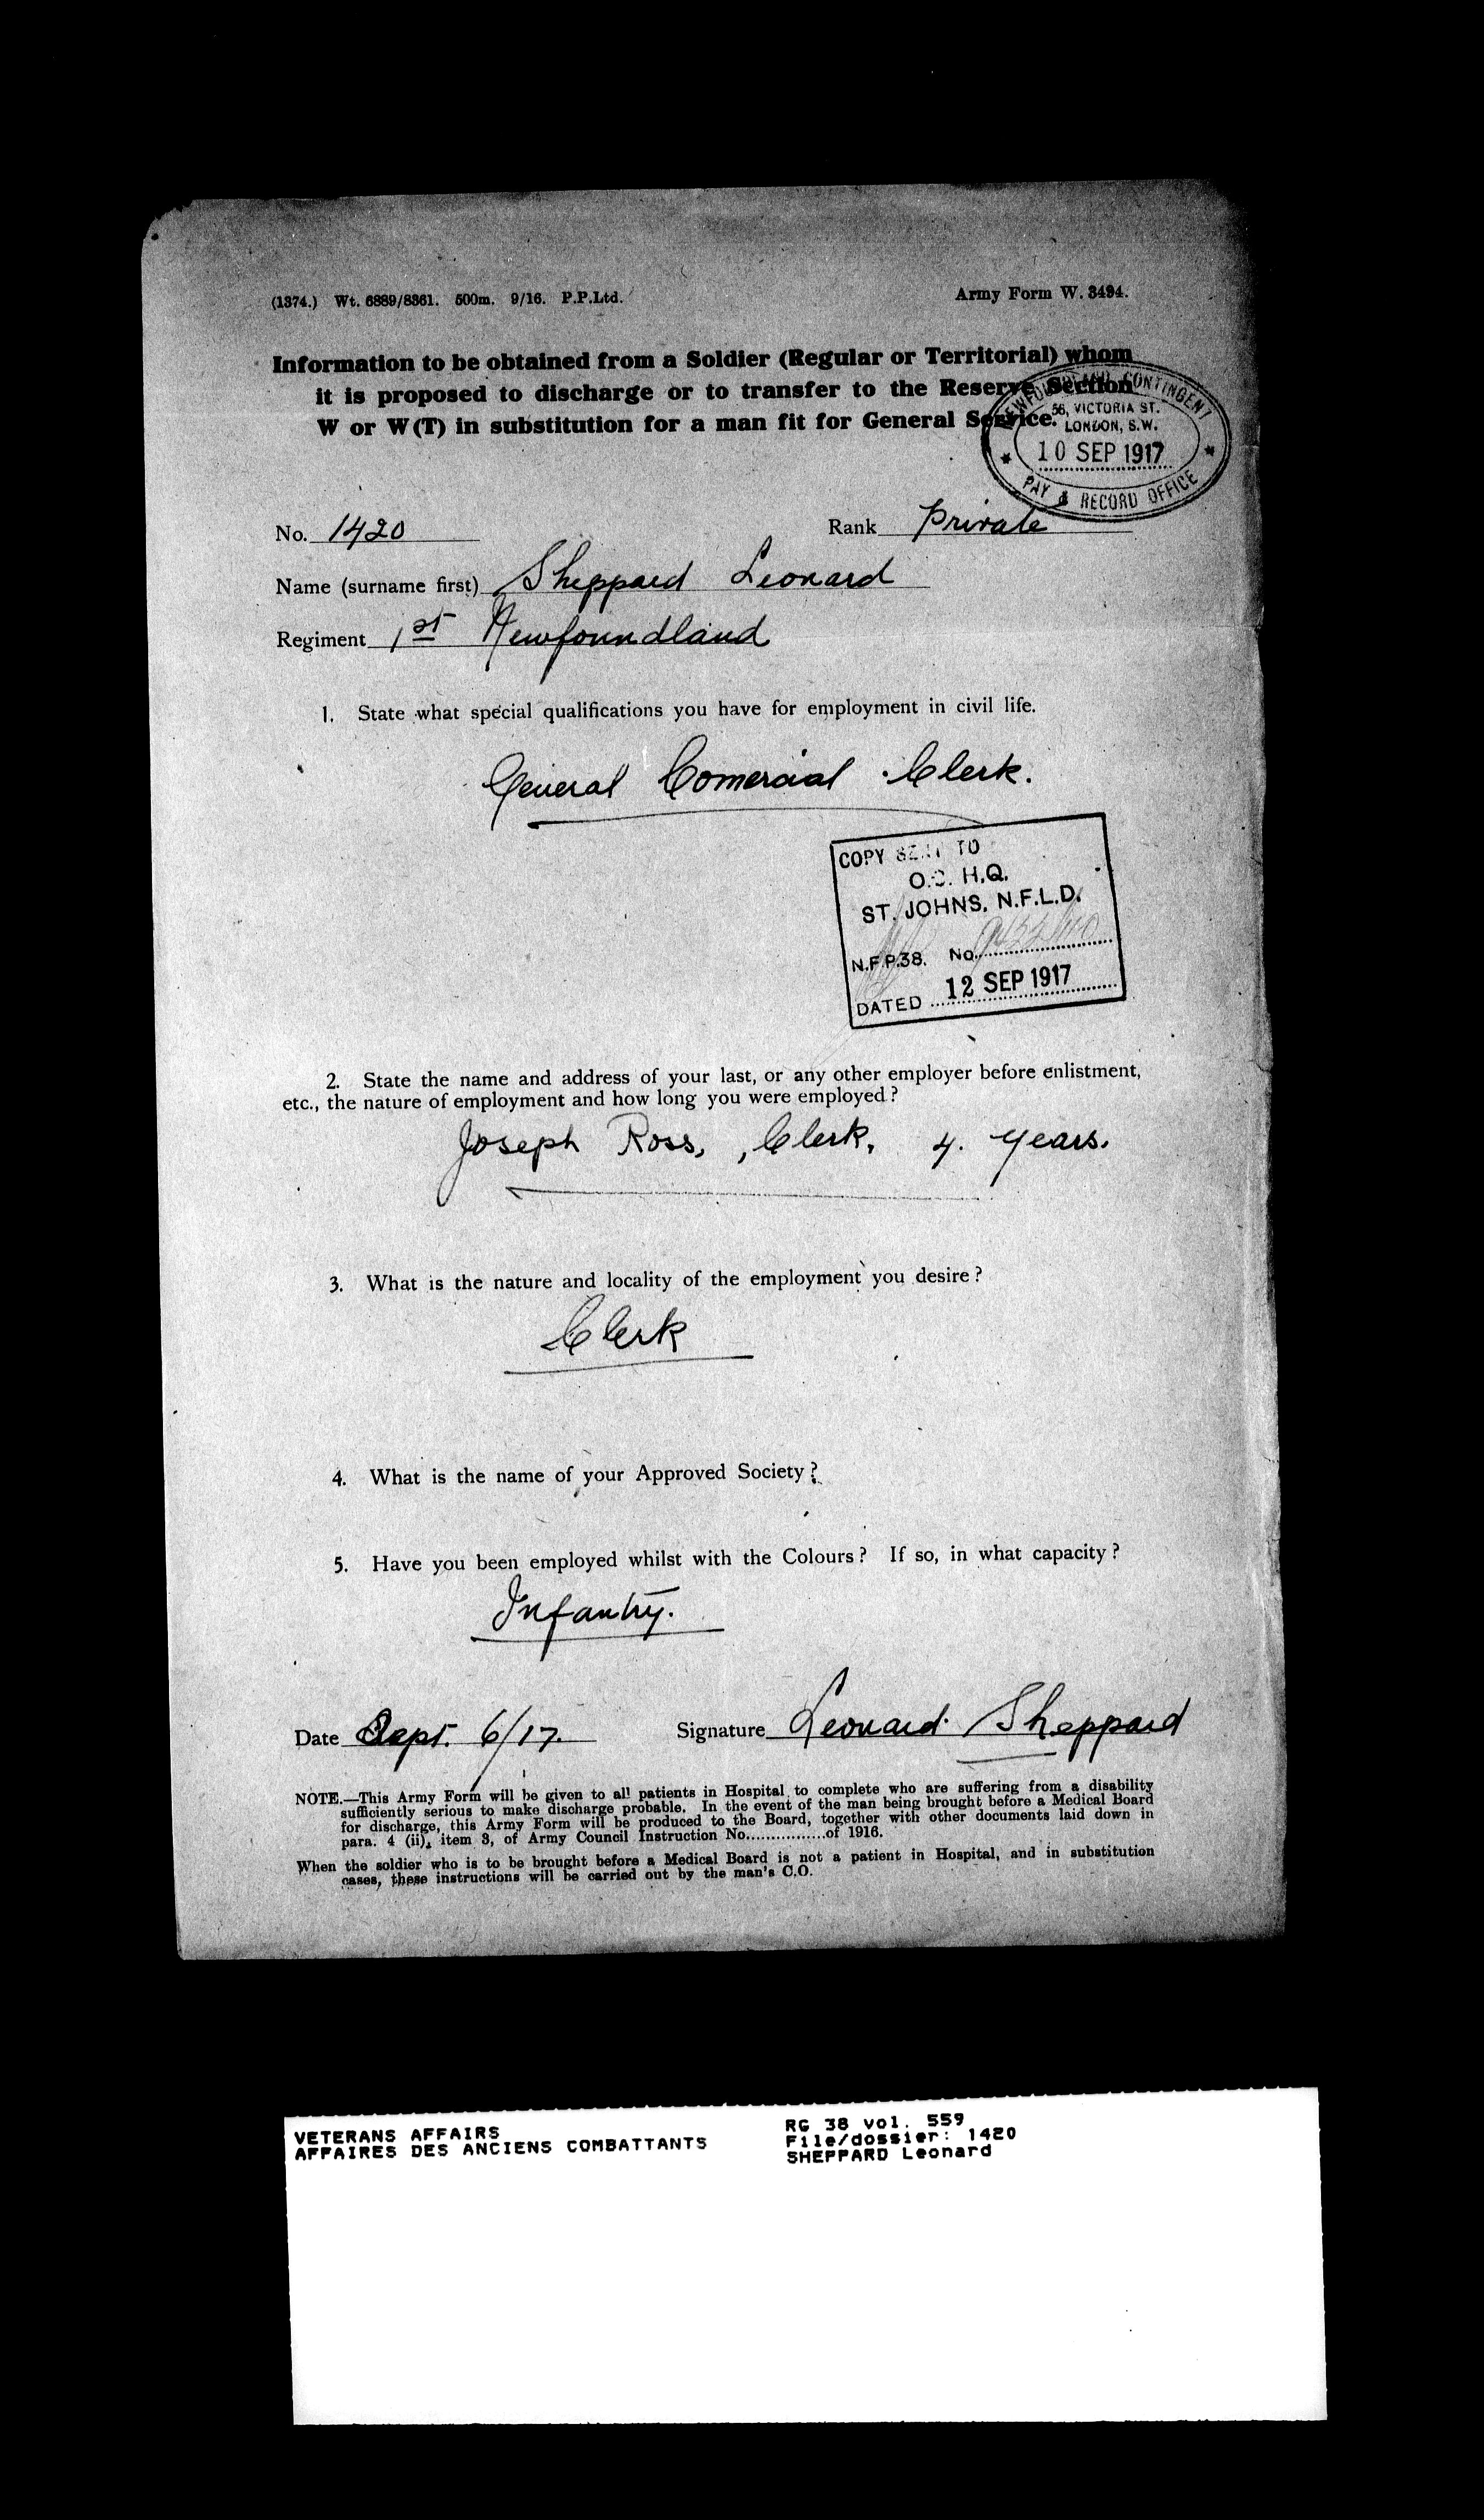 (1374.) Wt. 6889/8361. 500m. 9/16. P.P.Ltd.
Army Form W. 3494.
Information to be obtained from a Soldier (Regular or Territorial) whom
it is proposed to discharge or to transfer to the Reserve Section
W or W(T) in substitution for a man fit for General Service.
NEWFOUNDLAND CONTINGENT
58, VICTORIA ST.
LONDON, S.W.
10 SEP 1917
PAY & RECORD OFFICE
No. 1420
Rank Private
Name (surname first) Sheppard Leonard
Regiment 1st Newfoundland
1. State what special qualifications you have for employment in civil life.
General Comercial Clerk.
COPY SENT TO
O.C. H.Q.
ST. JOHNS, N.F.L.D.
N.F.P.38. No.
DATED 12 SEP 1917
2. State the name and address of your last, or any other employer before enlistment,
etc., the nature of employment and how long you were employed?
Joseph Ross, , Clerk, 4. years.
3. What is the nature and locality of the employment you desire?
Clerk
4. What is the name of your Approved Society?
5. Have you been employed whilst with the Colours? If so, in what capacity?
Infantry.
Date Sept. 6/17.
Signature Leonard Sheppard
NOTE.—This Army Form will be given to all patients in Hospital to complete who are suffering from a disability
sufficiently serious to make discharge probable. In the event of the man being brought before a Medical Board
for discharge, this Army Form will be produced to the Board, together with other documents laid down in
para. 4 (ii), item 3, of Army Council Instruction No................of 1916.
When the soldier who is to be brought before a Medical Board is not a patient in Hospital, and in substitution
cases, these instructions will be carried out by the man's C.O.
VETERANS AFFAIRS
AFFAIRES DES ANCIENS COMBATTANTS
RG 38 vol. 559
File/dossier: 1420
SHEPPARD Leonard